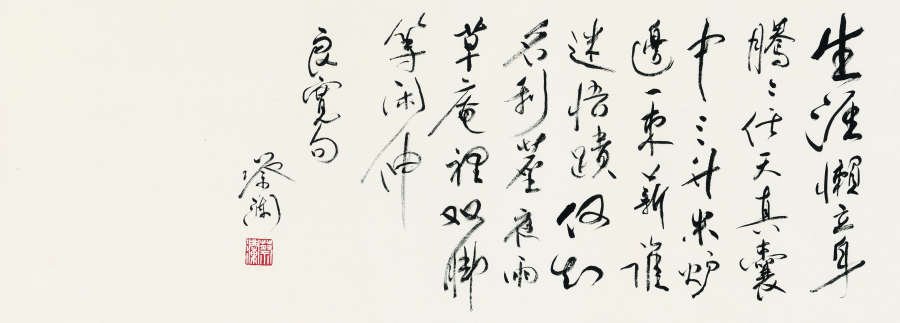 生涯懶立身
騰〻任天真囊
中三升米炉
邊一束薪誰
迷悟蹟何知
名利塵夜雨
草庵裡双脚
等闲伸
良寬句
蔡瀾
蔡瀾